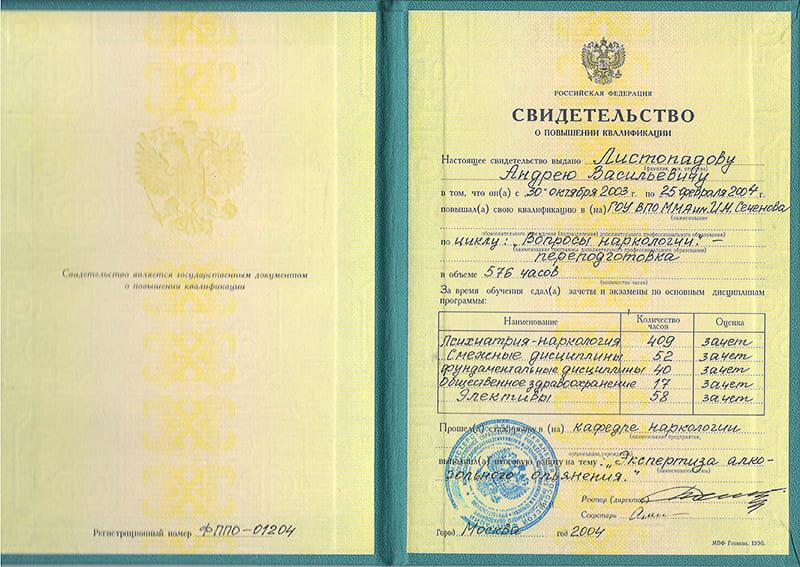 Свидетельство является государственным документом
о повышении квалификации
Регистрационный номер ФППО-01204
РОССИЙСКАЯ ФЕДЕРАЦИЯ
СВИДЕТЕЛЬСТВО
О ПОВЫШЕНИИ КВАЛИФИКАЦИИ
Настоящее свидетельство выдано Листопадову
(фамилия, имя, отчество)
Андрею Васильевичу
в том, что он(а) с 30 октября 2003 г. по 25 февраля 2004 г.
повышал(а) свою квалификацию в (на) ГОУ ВПО ММА им. И.М. Сеченова
(наименование
образовательного учреждения (подразделения) дополнительного профессионального образования)
по циклу: „Вопросы наркологии." –
(наименование программы дополнительного профессионального образования)
переподготовка
в объеме 576 часов
(количество часов)
За время обучения сдал(а) зачеты и экзамены по основным дисциплинам
программы:
Наименование Количество часов Оценка
Психиатрия-наркология 409 зачет
Смежные дисциплины 52 зачет
Фундаментальные дисциплины 40 зачет
Общественное здравоохранение 17 зачет
Элективы 58 зачет
Прошел(а) стажировку в (на) кафедре наркологии
(наименование предприятия,
организации, учреждения)
выполнил(а) итоговую работу на тему: „Экспертиза алко-
гольного опьянения."
Ректор (директор)
Секретарь
Город Москва год 2004
МПФ Гознака. 1996.